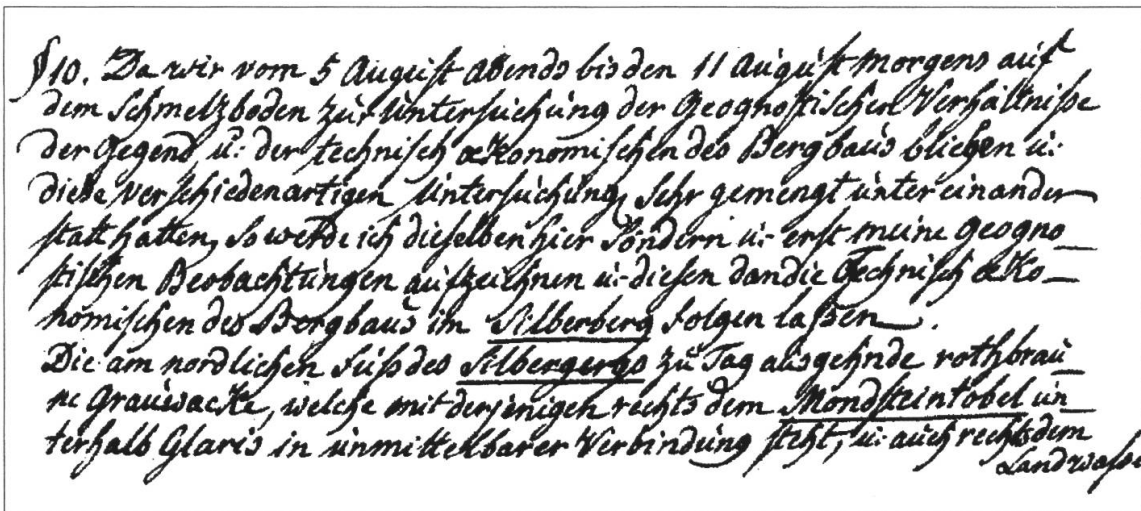 §10. Da wir vom 5 August Abends bis den 11 August morgens auf
dem Schmelzboden zur Untersuchung der Geognostischen Verhältniße
der Gegend u: der technisch oekonomischen des Bergbaus blieben u:
diese verschiedenartigen Untersuchung, sehr gemengt unter einander
statt hatten, so werde ich dieselben hier sondern u: erst meine geogno-
stischen Beobachtungen aufzeichnen u: diesen dan die Technisch oeko-
nomischen des Bergbaus im Silberberg folgen laßen.
Die am nordlichen Fuß des Silbergergs zu Tag ausgehnde rothbrau-
ne Grauwacke, welche mit derjenigen rechts dem Mondsteintobel un-
terhalb Glaris in unmittelbarer Verbindung steht, u: auch rechts dem
Landwasser